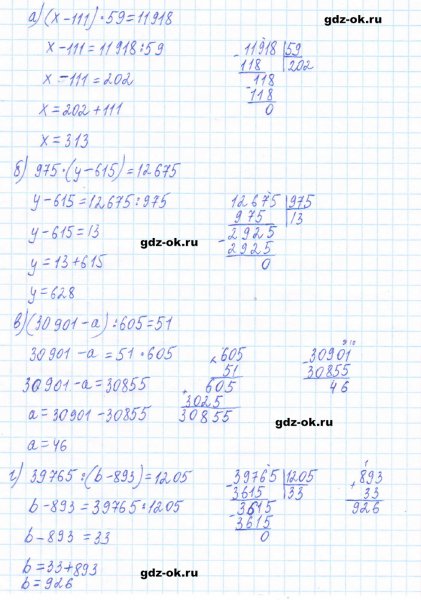 а) (x – 111) · 59 = 11918
x – 111 = 11918 : 59
x – 111 = 202
x = 202 + 111
x = 313
- 11918 | 59
118 | 202
- 118
118
0
gdz-ok.ru
б) 975 · (y – 615) = 12675
y – 615 = 12675 : 975
y – 615 = 13
y = 13 + 615
y = 628
gdz-ok.ru
- 12675 | 975
975 | 13
- 2925
2925
0
gdz-ok.ru
в) (30901 – a) : 605 = 51
30901 – a = 51 · 605
30901 – a = 30855
a = 30901 – 30855
a = 46
× 605
51
+ 605
3025
30855
9 10
- 30901
30855
46
gdz-ok.ru
г) 39765 : (b – 893) = 1205
b – 893 = 39765 : 1205
b – 893 = 33
b = 33 + 893
b = 926
- 39765 | 1205
3615 | 33
- 3615
3615
0
1
+ 893
33
926
gdz-ok.ru
gdz-ok.ru